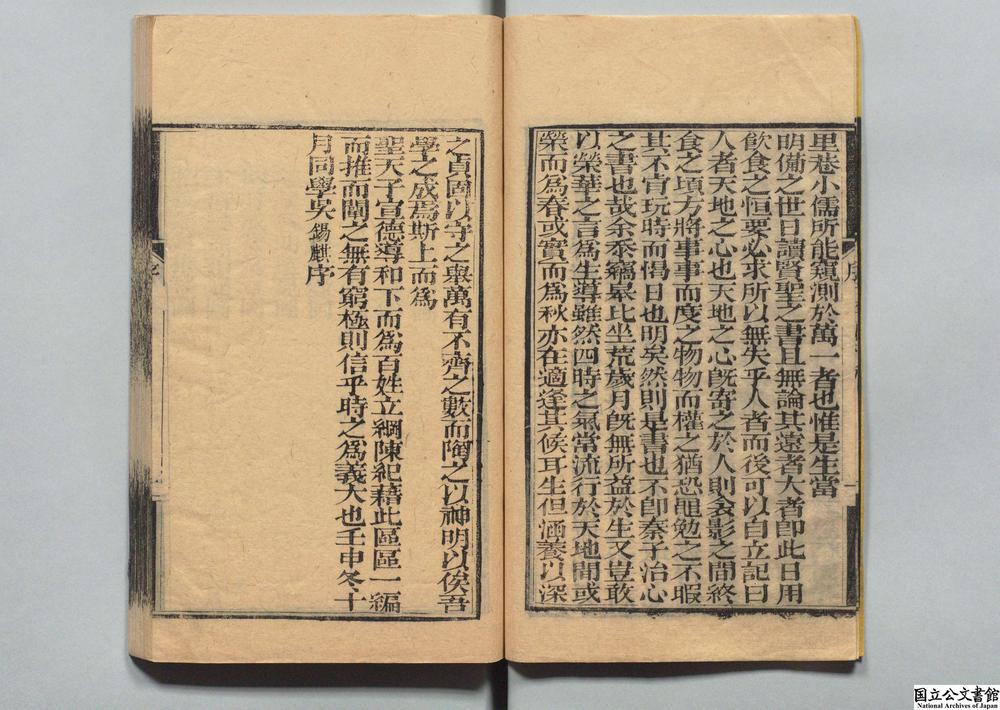 里巷小儒所能窺測於萬一者也惟是生當
明備之世日讀賢聖之書且無論其遠者大者卽此日用
飲食之恒要必求所以無失乎人者而後可以自立記曰
人者天地之心也天地之心旣寄之於人則衾影之間終
食之頃方將事事而度之物物而權之猶恐黽勉之不暇
其不肯玩時而愒日也明矣然則是書也不卽秦子治心
之書也哉余忝竊皋比坐荒歲月旣無所益於生又豈敢
以榮華之言爲生導雖然四時之氣常流行於天地間或
榮而爲春或實而爲秋亦在適逢其候耳生但涵養以深
之貞固以守之舉萬有不齊之數而陶之以神明以俟吾
學之成焉斯上而爲
聖天子宣德導和下而爲百姓立綱陳紀藉此區區一編
而推而闡之無有窮極則信乎時之爲義大也壬申冬十
月同學吳錫麒序
序
国立公文書館
National Archives of Japan